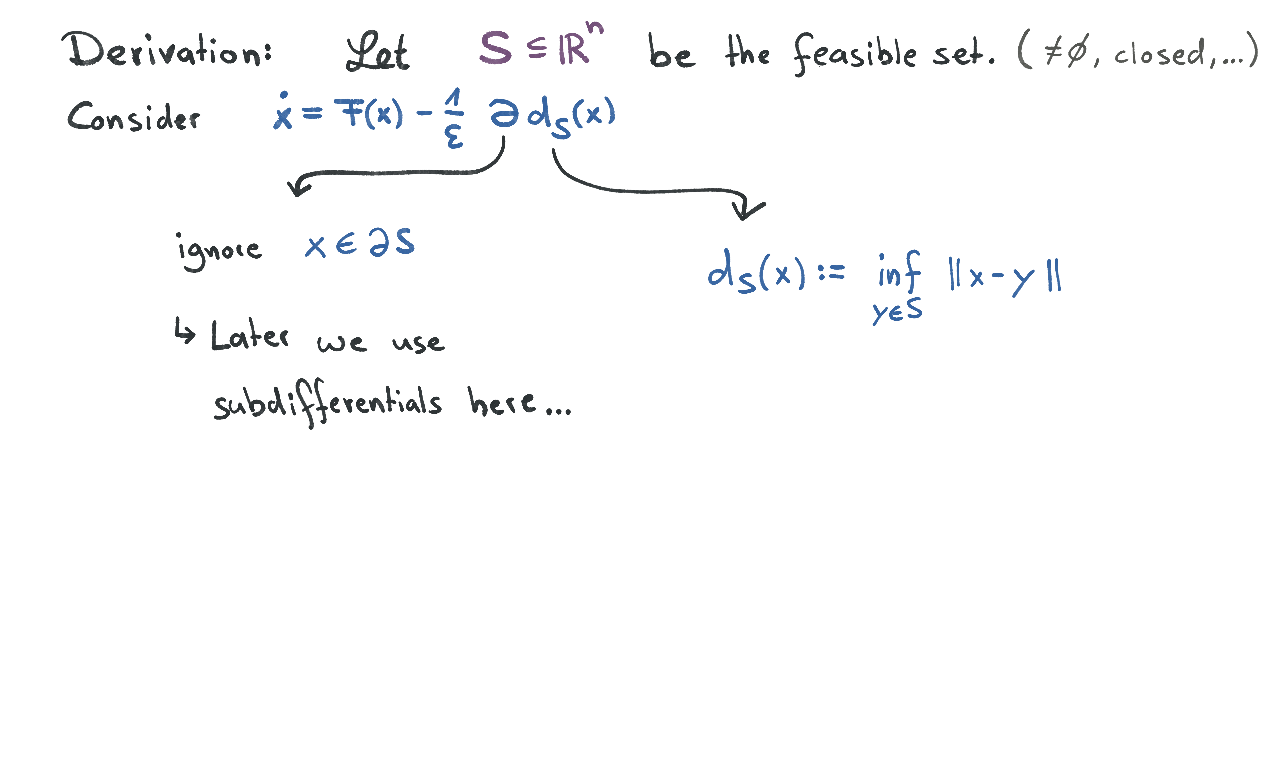 Derivation: Let S ⊆ ℝⁿ be the feasible set. (≠∅, closed,...)
Consider ẋ = F(x) - 1/ε ∂ d_S(x)
ignore x ∈ ∂S
d_S(x) := inf_{y∈S} ||x-y||
↳ Later we use
subdifferentials here...